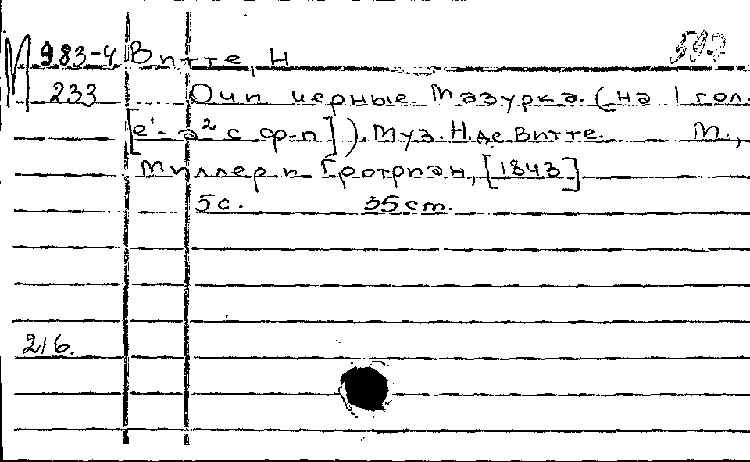 М 983-4 Витте, Н 597
233 Очи черные Мазурка. (на 1 гол.
[e¹-a² с ф-п]). Муз. Н. де Витте. М.,
Миллер и Гротриан, [1843]
5 с. 35 cm.
216.